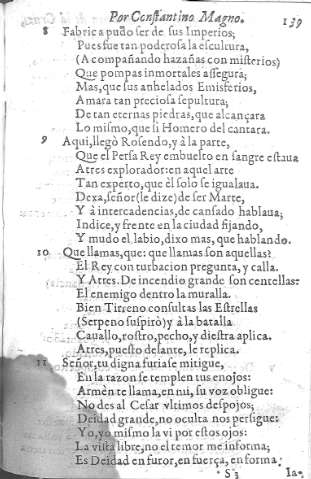 Por Constantino Magno. 139
8 Fabrica pudo ser de sus Imperios;
Pues fue tan poderosa la escultura,
(A compañando hazañas con misterios)
Que pompas inmortales assegura;
Mas, que sus anhelados Emisferios,
Amara tan preciosa sepultura;
De tan eternas piedras, que alcançara
Lo mismo, que si Homero del cantara.
9 Aqui, llegò Rosendo, y à la parte,
Que el Persa Rey embuelto en sangre estaua
Atres explorador: en aquel arte
Tan experto, que èl solo se igualaua.
Dexa, señor (le dize) de ser Marte,
Y à intercadencias, de cansado hablaua;
Indice, y frente en la ciudad fijando,
Y mudo el labio, dixo mas, que hablando.
10 Que llamas, que: que llamas son aquellas?
El Rey con turbacion pregunta, y calla.
Y Atres. De incendio grande son centellas:
El enemigo dentro la muralla.
Bien Tirreno consultas las Estrellas
(Serpeno suspirò) y à la batalla
Cauallo, rostro, pecho, y diestra aplica.
Atres, puesto delante, le replica.
11 Señor, tu digna furia se mitigue,
En la razon se templen tus enojos:
Armèn te llama, en mi, su voz obligue:
No des al Cesar vltimos despojos;
Deidad grande, no oculta nos persigue:
Yo, yo mismo la vi por estos ojos:
La vista libre, no el temor me informa;
Es Deidad en furor, en fuerça, en forma;
S 3 Ia-